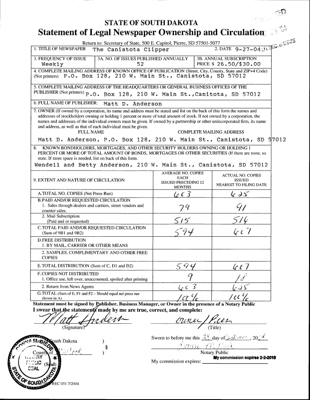 STATE OF SOUTH DAKOTA
Statement of Legal Newspaper Ownership and Circulation
Return to: Secretary of State, 500 E. Capitol, Pierre, SD 57501-5077
1. TITLE OF NEWSPAPER The Canistota Clipper 2. DATE 9-27-04
3. FREQUENCY OF ISSUE
Weekly
3A. NO. OF ISSUES PUBLISHED ANNUALLY
52
3B. ANNUAL SUBSCRIPTION
PRICE $ 26.50/$30.00
4. COMPLETE MAILING ADDRESS OF KNOWN OFFICE OF PUBLICATION (Street, City, County, State and ZIP+4 Code)
(Not printers) P.O. Box 128, 210 W. Main St., Canistota, SD 57012
5. COMPLETE MAILING ADDRESS OF THE HEADQUARTERS OR GENERAL BUSINESS OFFICES OF THE
PUBLISHER (Not printer) P.O. Box 128, 210 W. Main St., Canistota, SD 57012
6. FULL NAME OF PUBLISHER: Matt D. Anderson
7. OWNER (If owned by a corporation, its name and address must be stated and also the names and
addresses of stockholders owning or holding 1 percent or more of total amount of stock. If not owned by a corporation, the
names and addresses of the individual owners must be given. If owned by a partnership or other unincorporated firm, its name
and address, as well as that of each individual must be given.
FULL NAME COMPLETE MAILING ADDRESS
Matt D. Anderson, P.O. Box 128, 210 W. Main St., Canistota, SD 57012
8. KNOWN BONDHOLDERS, MORTGAGES, AND OTHER SECURITY HOLDERS OWNING OR HOLDING 1
PERCENT OR MORE OF TOTAL AMOUNT OF BONDS, MORTGAGES OR OTHER SECURITIES (If there are none, so
state. If more space is needed, list on back of this form.
Wendell and Betty Anderson, 210 W. Main St., Canistota, SD 57012
9. EXTENT AND NATURE OF CIRCULATION
AVERAGE NO. COPIES
EACH
ISSUED PRECEDING 12
MONTHS
ACTUAL NO. COPIES
ISSUED
NEAREST TO FILING DATE
A. TOTAL NO. COPIES (Net Press Run)
B. PAID AND/OR REQUESTED CIRCULATION
1. Sales through dealers and carriers, street vendors and
counter sales. 79 91
2. Mail Subscription
(Paid and or requested) 515 516
C. TOTAL PAID AND/OR REQUESTED CIRCULATION
(Sum of 9B1 and 9B2) 594 607
D. FREE DISTRIBUTION
1. BY MAIL, CARRIER OR OTHER MEANS
2. SAMPLES, COMPLIMENTARY AND OTHER FREE
COPIES
E. TOTAL DISTRIBUTION (Sum of C, D1 and D2) 594 607
F. COPIES NOT DISTRIBUTED
1. Office use, left over, unaccounted, spoiled after printing 9
2. Return from News Agents
G. TOTAL (Sum of E, F1 and F2 - Should equal net press run
shown in A)
Statement must be signed by Publisher, Business Manager, or Owner in the presence of a Notary Public
I swear that the statements made by me are true, correct, and complete:
Matt Anderson
(Signature) (Title)
South Dakota )
Sworn to before me this
Notary Public
My commission expires: My commission expires 2-2-2010